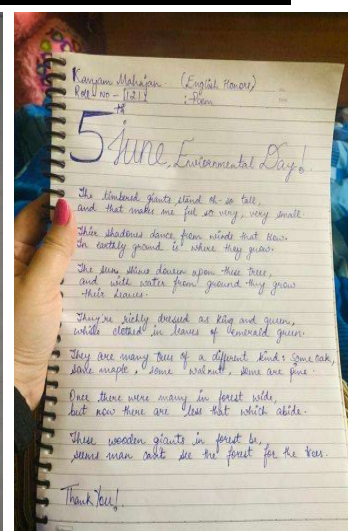 Kanyam Mahajan. (English Honors)
Roll No - [121] : Poem
5th June, Enviornmental Day!
The timbered giants stand oh-so tall,
and that make me feel so very, very small.
Their shadows dance from winds that blow.
In earthly ground is where they grow.
The suns shine down upon these trees,
and with water from ground they grow
their leaves.
They're richly dressed as king and queen,
while clothed in leaves of emerald green.
They are many trees of a different kind: Some oak,
some maple, some walnut, some are pine.
Once there were many in forest wide,
but now there are less that which abide.
These wooden giants in forest be,
seems man can't see the forest for the trees.
Thank You!